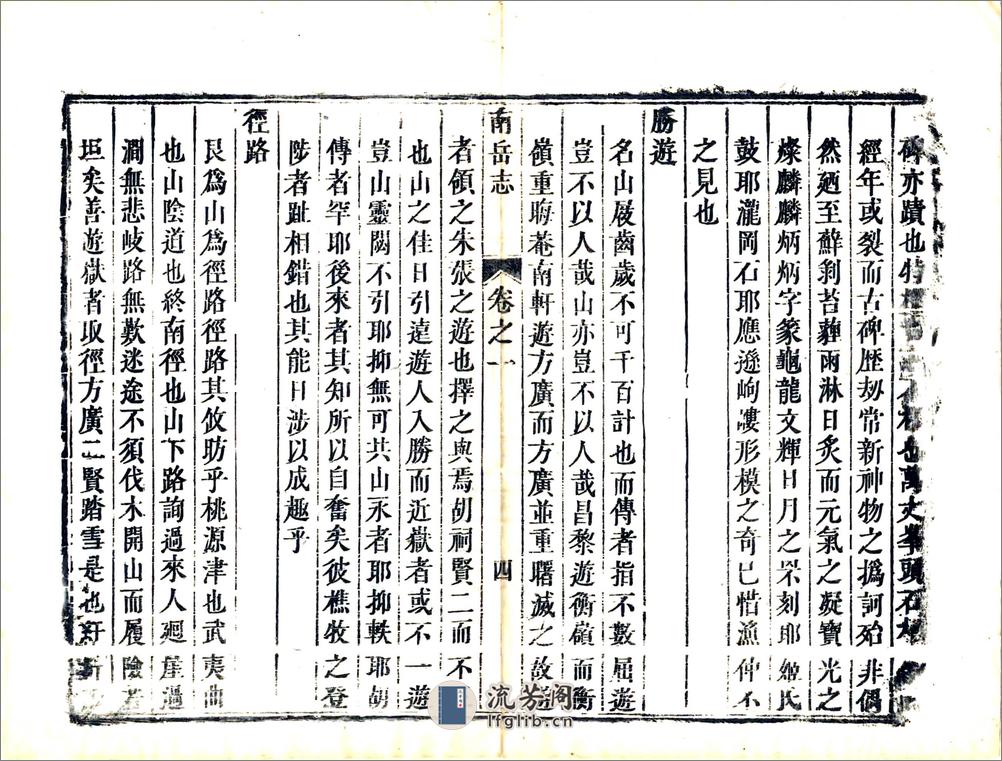 碑亦蹟也特
經年或裂而古碑歷刼常新神物之撝訶殆非偶
然廼至蘚剥苔薶雨淋日炙而元氣之凝寶光之
燦麟麟炳炳字篆龜龍文輝日月之杲刻耶姬氏
鼓耶瀧岡石耶應遜岣嶁形模之奇已惜漁仲不
之見也
勝遊
名山屐齒歲不可千百計也而傳者指不數屈遊
豈不以人哉山亦豈不以人哉昌黎遊衡嶺而衡
嶺重晦菴南軒遊方廣而方廣並重曙滅之故遊
南岳志 卷之一 四
者領之朱張之遊也擇之與焉胡祠賢二而不
也山之佳日引遠遊人入勝而近嶽者或不一遊
豈山靈閟不引耶抑無可共山永者耶抑軼耶胡
傳者罕耶後來者其知所以自奮矣彼樵牧之登
陟者趾相錯也其能日涉以成趣乎
徑路
艮爲山爲徑路徑路其攸昉乎桃源津也武夷曲
也山陰道也終南徑也山下路詢過來人廻崖過
澗無悲岐路無歎迷途不須伐木開山而履險者
坦矣善遊嶽者取徑方廣二賢踏雪是也
流芳阁
lfglib.cn